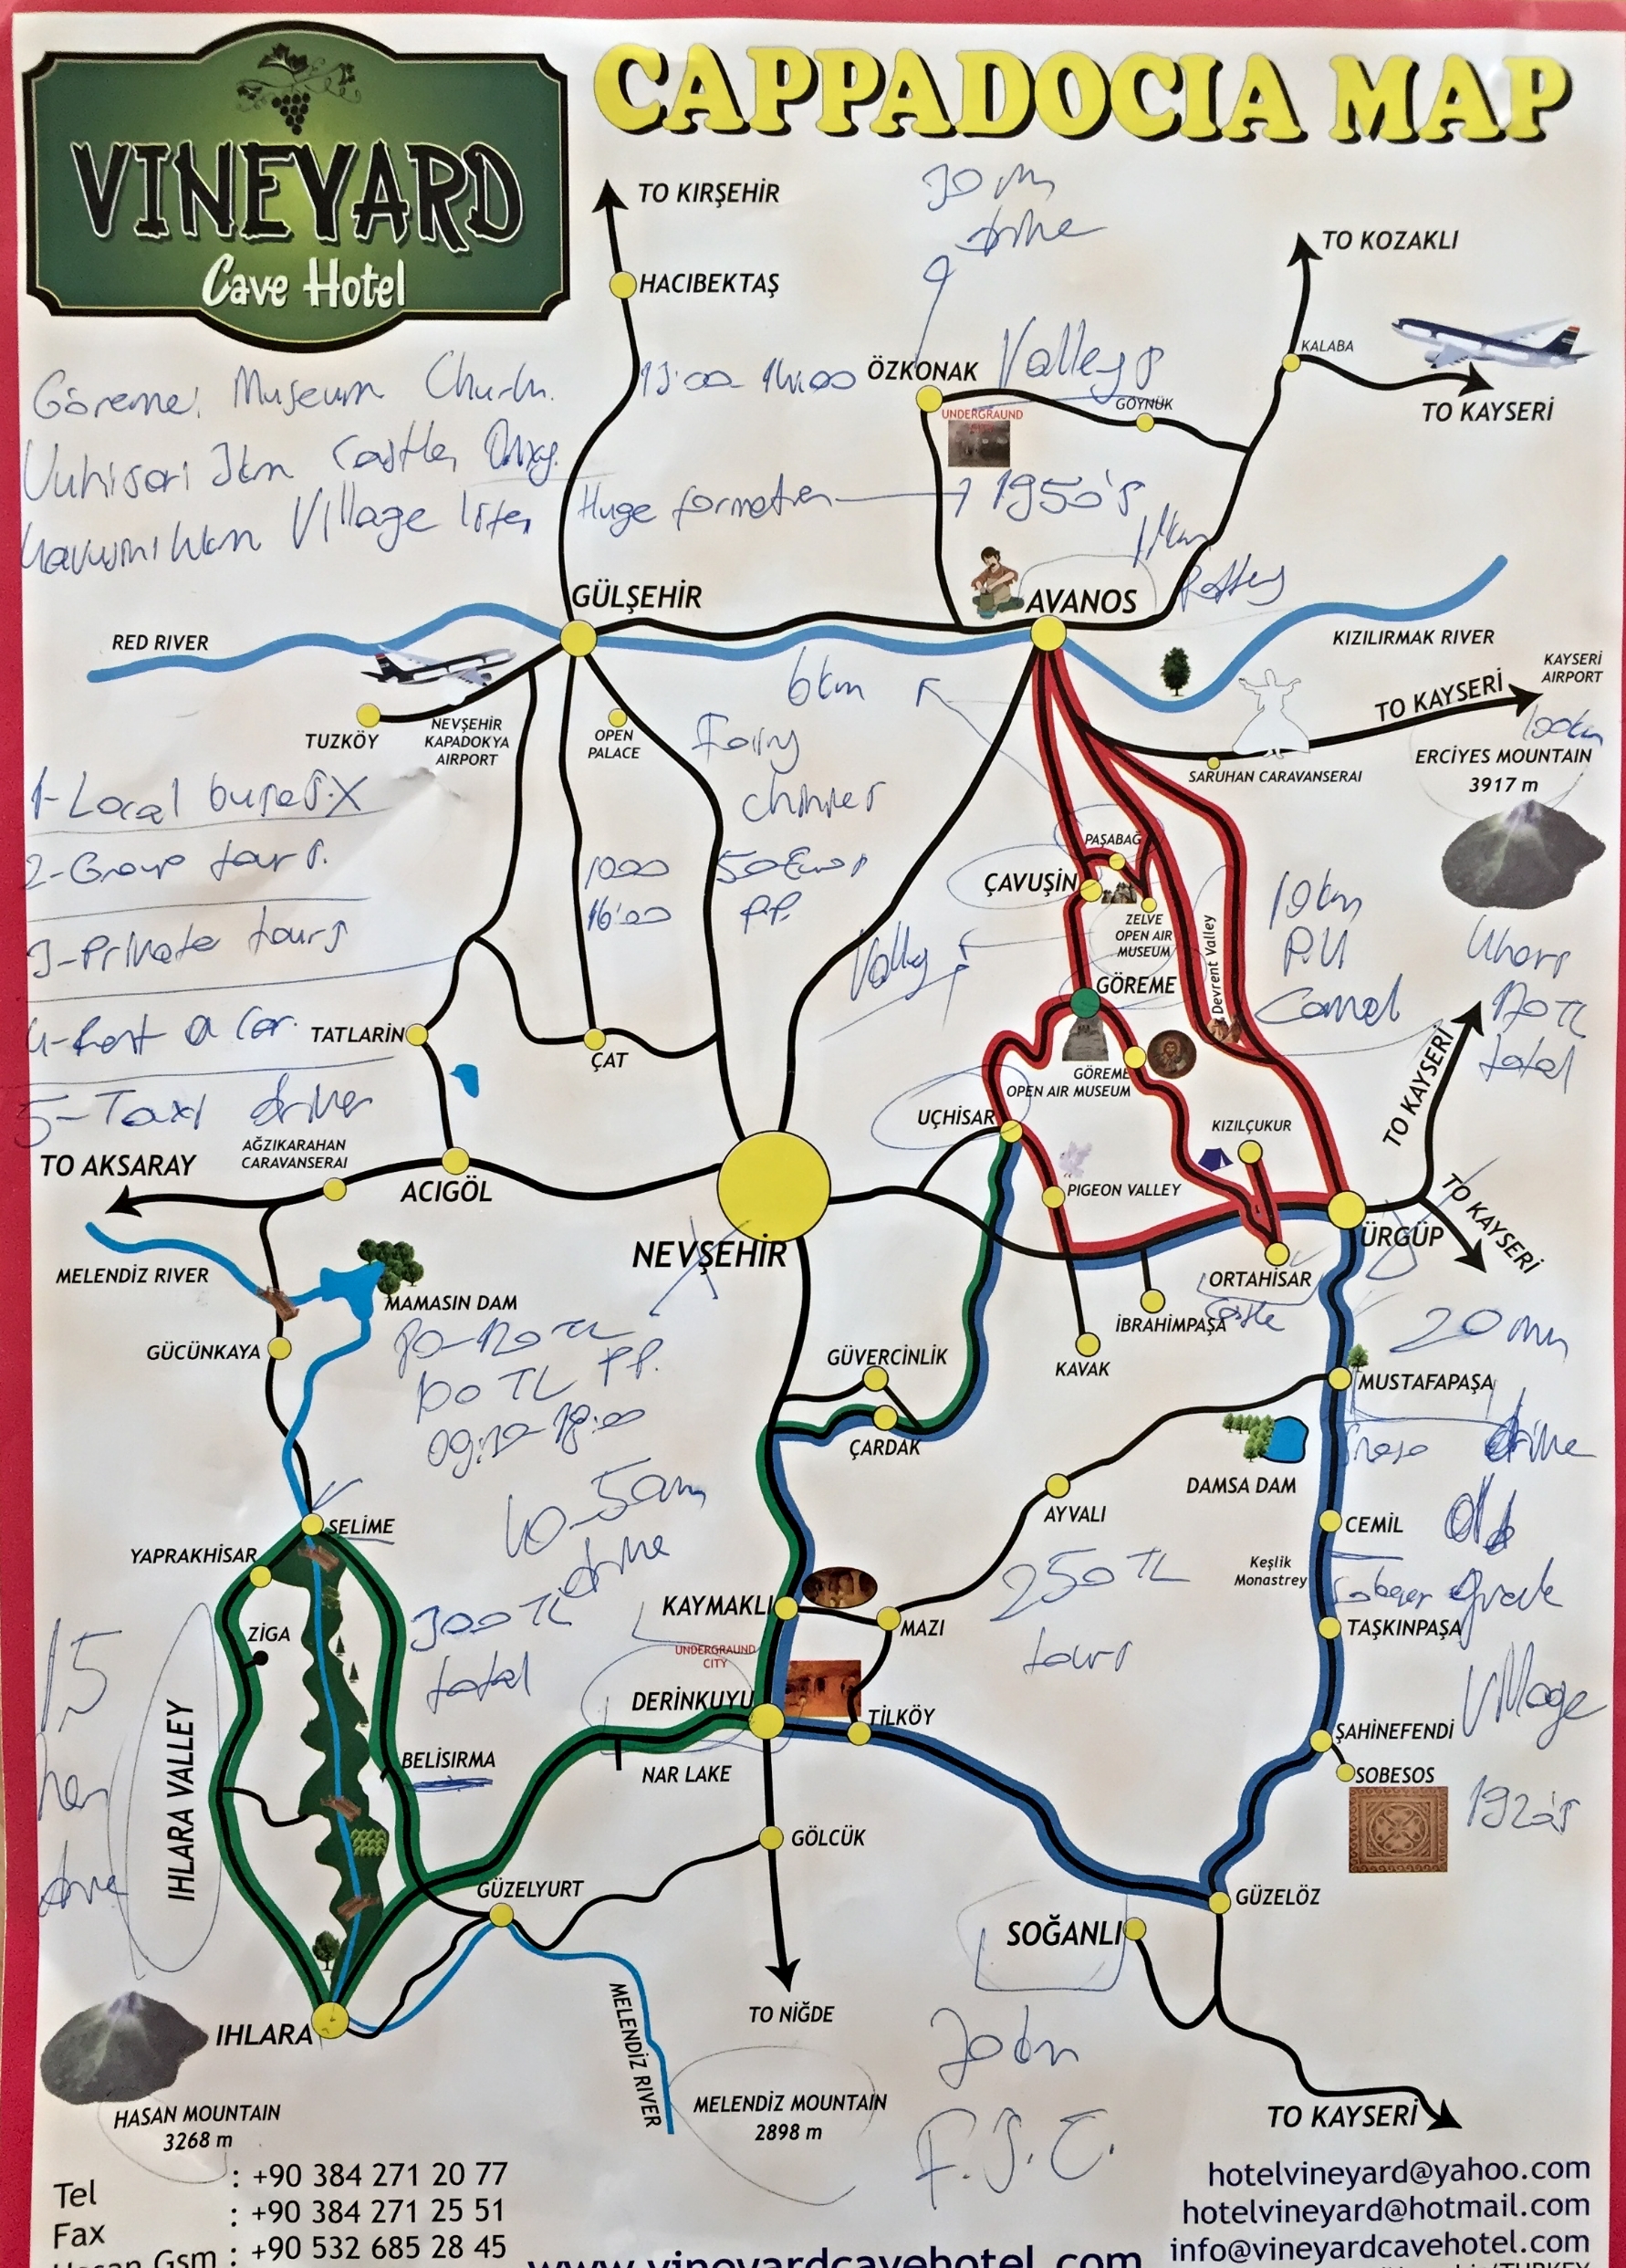 VINEYARD
Cave Hotel
CAPPADOCIA MAP
TO KIRŞEHİR
HACIBEKTAŞ
TO KOZAKLI
KALABA
TO KAYSERİ
Museum
13:00
ÖZKONAK
Valleys
UNDERGRAUND
GÖYNÜK
Castle,
Village life,
Huge formation
1950's
Pottery
GÜLŞEHİR
AVANOS
RED RIVER
KIZILIRMAK RIVER
KAYSERİ
AIRPORT
TO KAYSERİ
6km
TUZKÖY
NEVŞEHİR
KAPADOKYA
AIRPORT
OPEN
PALACE
Fairy
SARUHAN CARAVANSERAI
100km
ERCİYES MOUNTAIN
3917 m
1-Local buses.X
2-Group tours.
3-Private tours
4-Rent a Car.
5-Taxi driver
16:00
50 Euros
P.P.
PAŞABAĞ
ÇAVUŞİN
ZELVE
OPEN AIR
MUSEUM
Devrent Valley
10km
Camel
Valley
GÖREME
GÖREME
OPEN AIR MUSEUM
170 TL
total
TATLARİN
ÇAT
UÇHİSAR
KIZILÇUKUR
TO KAYSERİ
TO AKSARAY
AĞZIKARAHAN
CARAVANSERAI
ACIGÖL
PIGEON VALLEY
NEVŞEHİR
ÜRGÜP
TO KAYSERİ
MELENDİZ RIVER
MAMASIN DAM
ORTAHİSAR
Castle
İBRAHİMPAŞA
KAVAK
GÜCÜNKAYA
100 TL P.P.
GÜVERCİNLİK
ÇARDAK
20 min
drive
MUSTAFAPAŞA
DAMSA DAM
AYVALI
SELİME
YAPRAKHİSAR
drive
CEMİL
Old
Keşlik
Monastrey
Greek
Village
KAYMAKLI
MAZI
250 TL
tours
TAŞKINPAŞA
ZİGA
300 TL
total
UNDERGRAUND
CITY
DERİNKUYU
TİLKÖY
ŞAHİNEFENDİ
SOBESOS
1920's
IHLARA VALLEY
BELİSIRMA
NAR LAKE
GÖLCÜK
GÜZELYURT
SOĞANLI
GÜZELÖZ
IHLARA
MELENDİZ RIVER
TO NİĞDE
HASAN MOUNTAIN
3268 m
MELENDİZ MOUNTAIN
2898 m
TO KAYSERİ
Tel : +90 384 271 20 77
Fax : +90 384 271 25 51
Hasan Gsm : +90 532 685 28 45
www.vineyardcavehotel.com
hotelvineyard@yahoo.com
hotelvineyard@hotmail.com
info@vineyardcavehotel.com